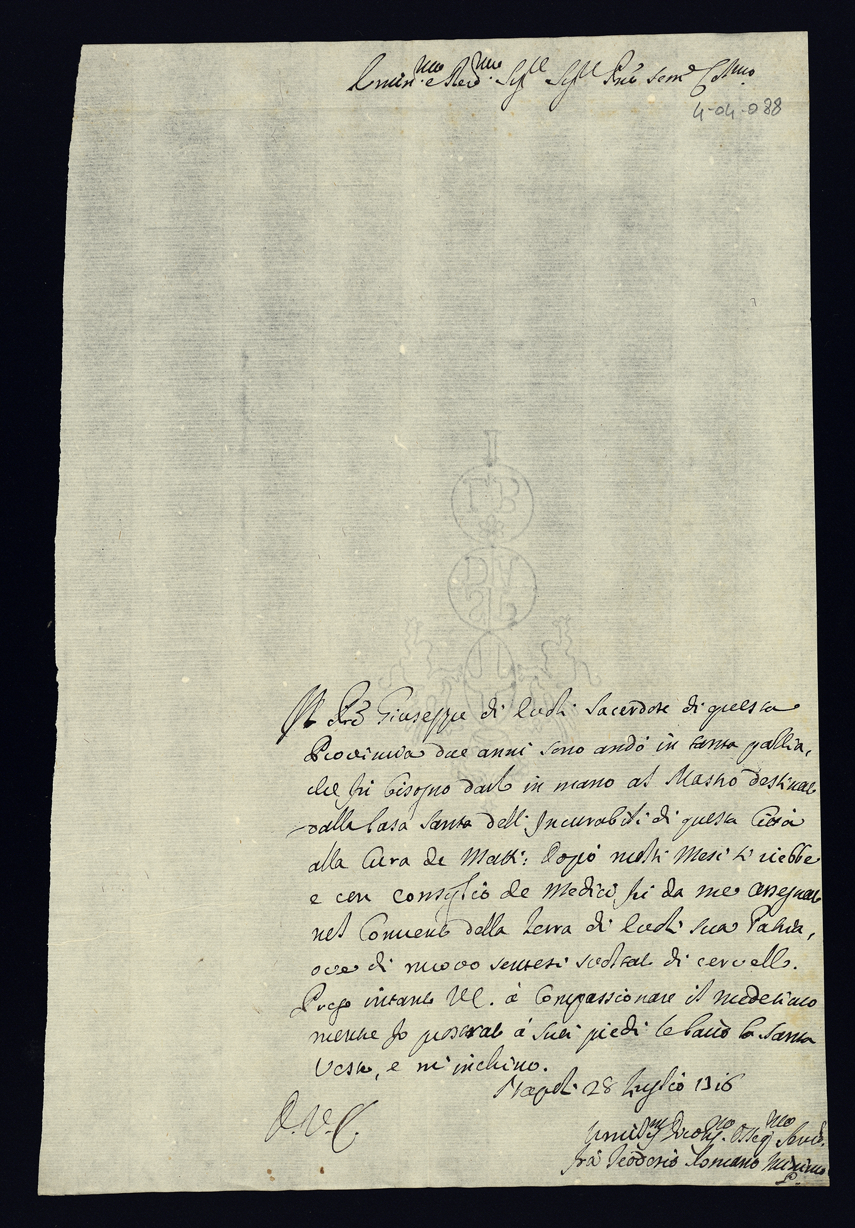 Emin.mo e Rev.mo Sig.re Sig.re P.ne sem.e Col.mo
4-04-088
I B
Il P̃re Giuseppe di Lochi sacerdote di questa
Provincia due anni sono andò in tanta pazzia,
che fù bisogno darlo in mano al Mastro destinato
dalla Casa Santa dell'Incurabili di questa Città
alla Cura de Matti: dopò molti Mesi si riebbe
e con consiglio de Medici fù da me assegnato
nel Convento della Terra di Lochi sua Patria,
ove di nuovo sentesi svoltato di cervello.
Prego intanto V.E. à Compassionare il medesimo
mentre Io prostrato à suoi piedi le bacio la Santa
Veste, e m'inchino.
Napoli 28 Luglio 1716
D. V. E.
Umil.mo Divot.mo Osseq.mo Serv.
frà Teodosio Romano Minimo
P.